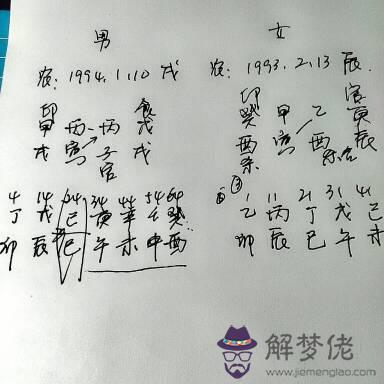 男
农:1994.1.10 戌
印 食
甲 丙 丙 戊
戌 寅 子 戌
官
4 14 24 34 44 54 64
丁 戊 己 庚 辛 壬 癸
卯 辰 巳 午 未 申 酉
女
农:1993.2.13 辰
印 官
癸 甲 乙 庚
酉 寅 酉 辰
杀
1 11 21 31 41
乙 丙 丁 戊 己
卯 辰 巳 午 未
解梦佬
www.jiemenglao.com